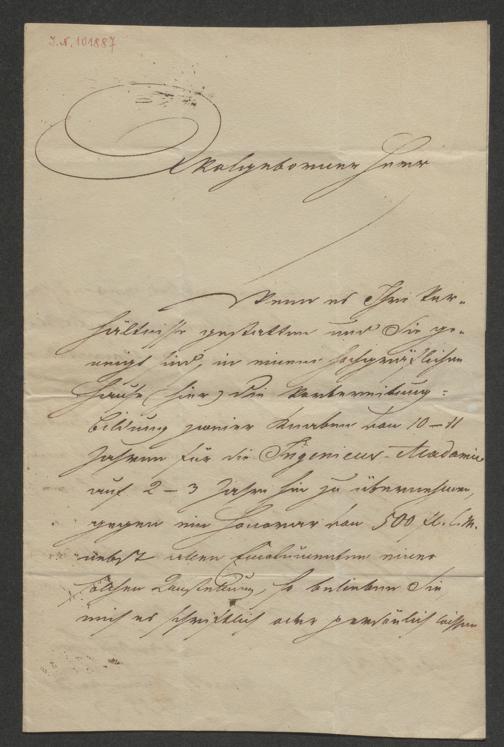 I.N. 101887
Wohlgeborner Herr
Wenn es Ihre Ver-
hältnisse gestatten und Sie ge-
neigt sind, in einem hochgräflichen
Hause (hier) die Vorbereitung-
bildung zweier Knaben von 10–11
Jahren für die Ingenieur-Academie
auf 2–3 Jahre hin zu übernehmen,
gegen ein Honorar von 500 fl. C.M.
nebst allen Emolumenten einer
solchen Anstellung, so belieben Sie
mich es schriftlich oder persönlich wissen